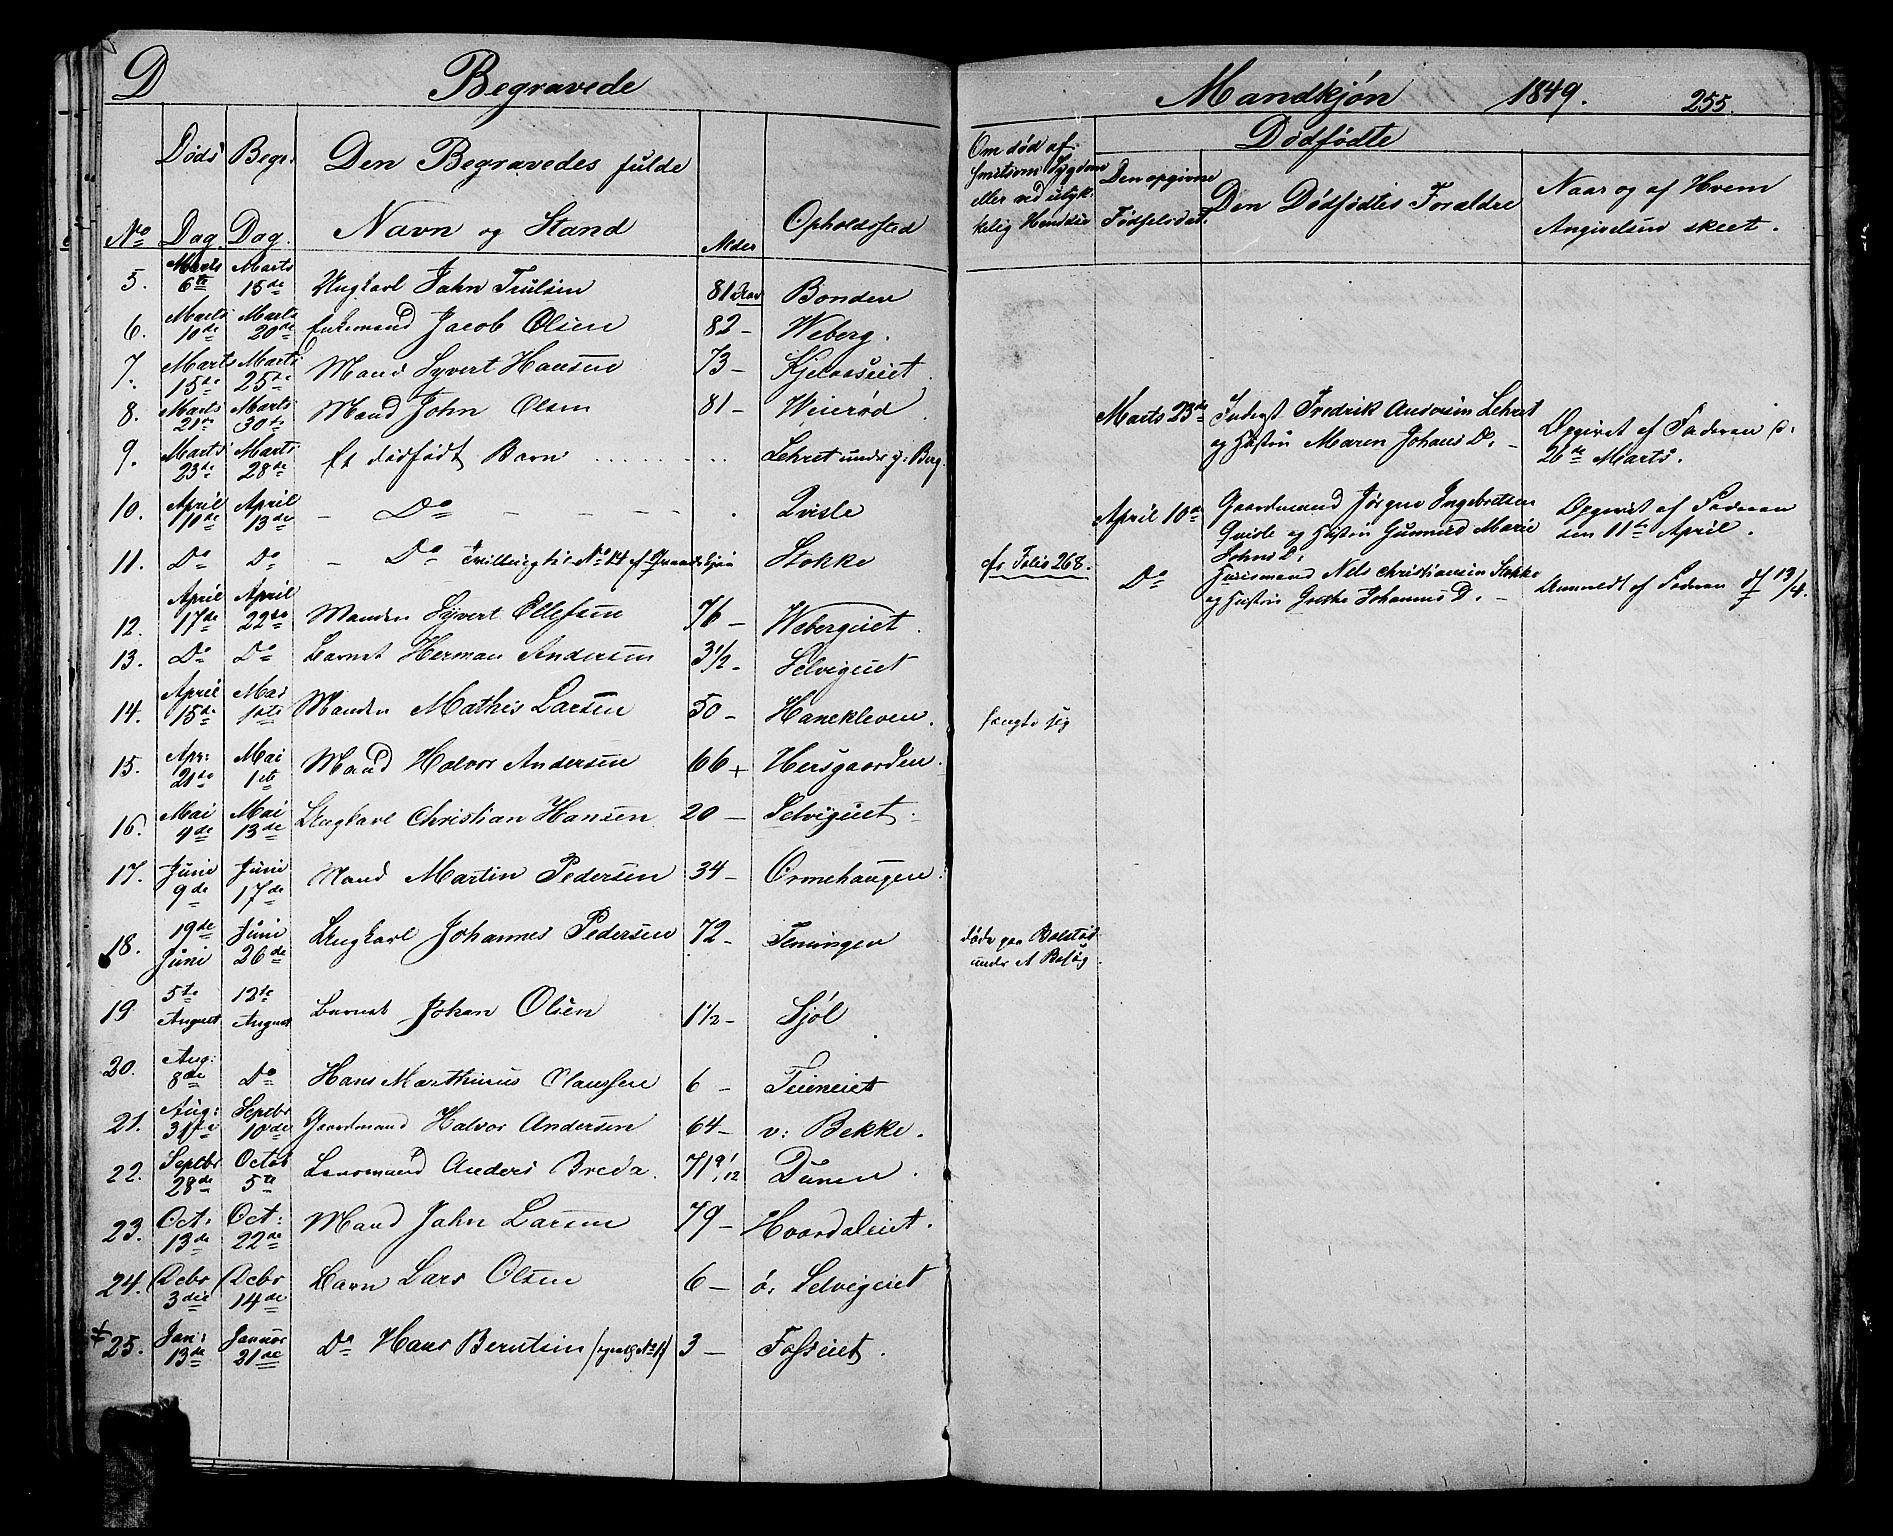 D Begravede Mandkjøn 1849. 255.
No Døds Dag. Begr. Dag. Den Begravedes fulde Navn og Stand Alder Opholdssted
Om død af smitsom Sygdom eller ved ulyk- kelig Hendelse
Dødfødte
Den opgivne Fødselsdat. Den Dødfødtes Forældre Naar og af Hvem Angivelsen skeet.
5. Marts 6te Marts 15de Ungkarl Jahn Trulsen 81 Aar Bonden
6. Marts 10de Marts 20de Enkemand Jacob Olsen 82 – Weberg.
7. Marts 15de Marts 25de Mand Syvert Hansen 73 – Kjelaaseiet.
8. Marts 21de Marts 30te Mand John Olsen 81 – Weierød.
9. Marts 23de Marts 28de Et dødfødt Barn . . . . . Lehret under g: Berg. Marts 23de Inderst Fredrik Andersen Lehret og Hustru Maren Johans D. – Opgivet af Faderen d: 26de Marts.
10. April 10de April 13de – Do – – – – . Qvisle April 10de Gaardmand Jørgen Ingebretsen Quisle og Hustru Gunnild Marie Johns D. Opgivet af Faderen den 11te April.
11. Do Do – Do Tvilling til No 14 af Qvindekjøn Stokke cfr Folio 268. Do Huusmand Nels Christiansen Stokke og Hustru Grethe Johannes D. – Anmeldt af Faderen d 13/4.
12. April 17de April 22de Manden Syvert Ellefsen 76 – Webergeiet.
13. Do Do Barnet Herman Andersen 3 1/2 – Selvigeiet
14. April 15de Mai 1ste Manden Mathis Larsen 50 – Hanekleven. hængte sig
15. Apr: 21de Mai 1ste Mand Halvor Andersen 66 + Hersgaarden.
16. Mai 4de Mai 13de Ungkarl Christian Hansen 20 – Selvigeiet.
17. Juni 9de Juni 17de Mand Martin Pedersen 34 – Ormehaugen.
18. 19de Juni Juni 26de Ungkarl Johannes Pedersen 72 – Teningen døde paa Bolstad under et Besøg.
19 5te August 12te August Barnet Johan Olsen 1 1/2 – Sjøl
20. Aug: 8de Do Hans Marthinus Clausen 6 – Teieneiet
21. Aug: 31te Septbr 10de Gaardmand Halvor Andersen 64 – v: Bekke.
22. Septbr 28de Octob 5te Lensmand Anders Breda. 71 9/12 Duren.
23. Oct: 13de Oct: 22de Mand Jahn Larsen 79 – Hvardaleiet.
24. Decbr 3die Decbr 14de Barn Lars Olsen 6 – ø. Selvigeiet
+ 25. Jan: 13de Januar 21de Do Hans Berntsen 3 – Fosseiet.